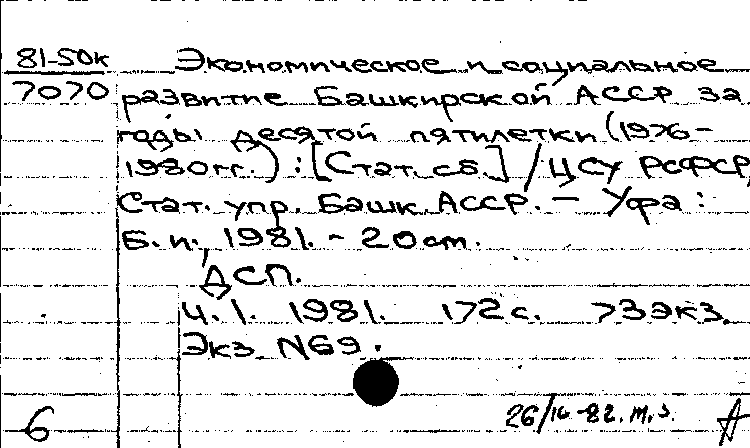 81-50к Экономическое и социальное
7070 развитие Башкирской АССР за
годы десятой пятилетки (1976-
1980гг.) : [Стат. сб.] / ЦСУ РСФСР,
Стат. упр. Башк. АССР. – Уфа :
Б. и., 1981. - 20 см.
ДСП.
Ч. 1. 1981. 172 с. 73 экз.
Экз. N69.
6